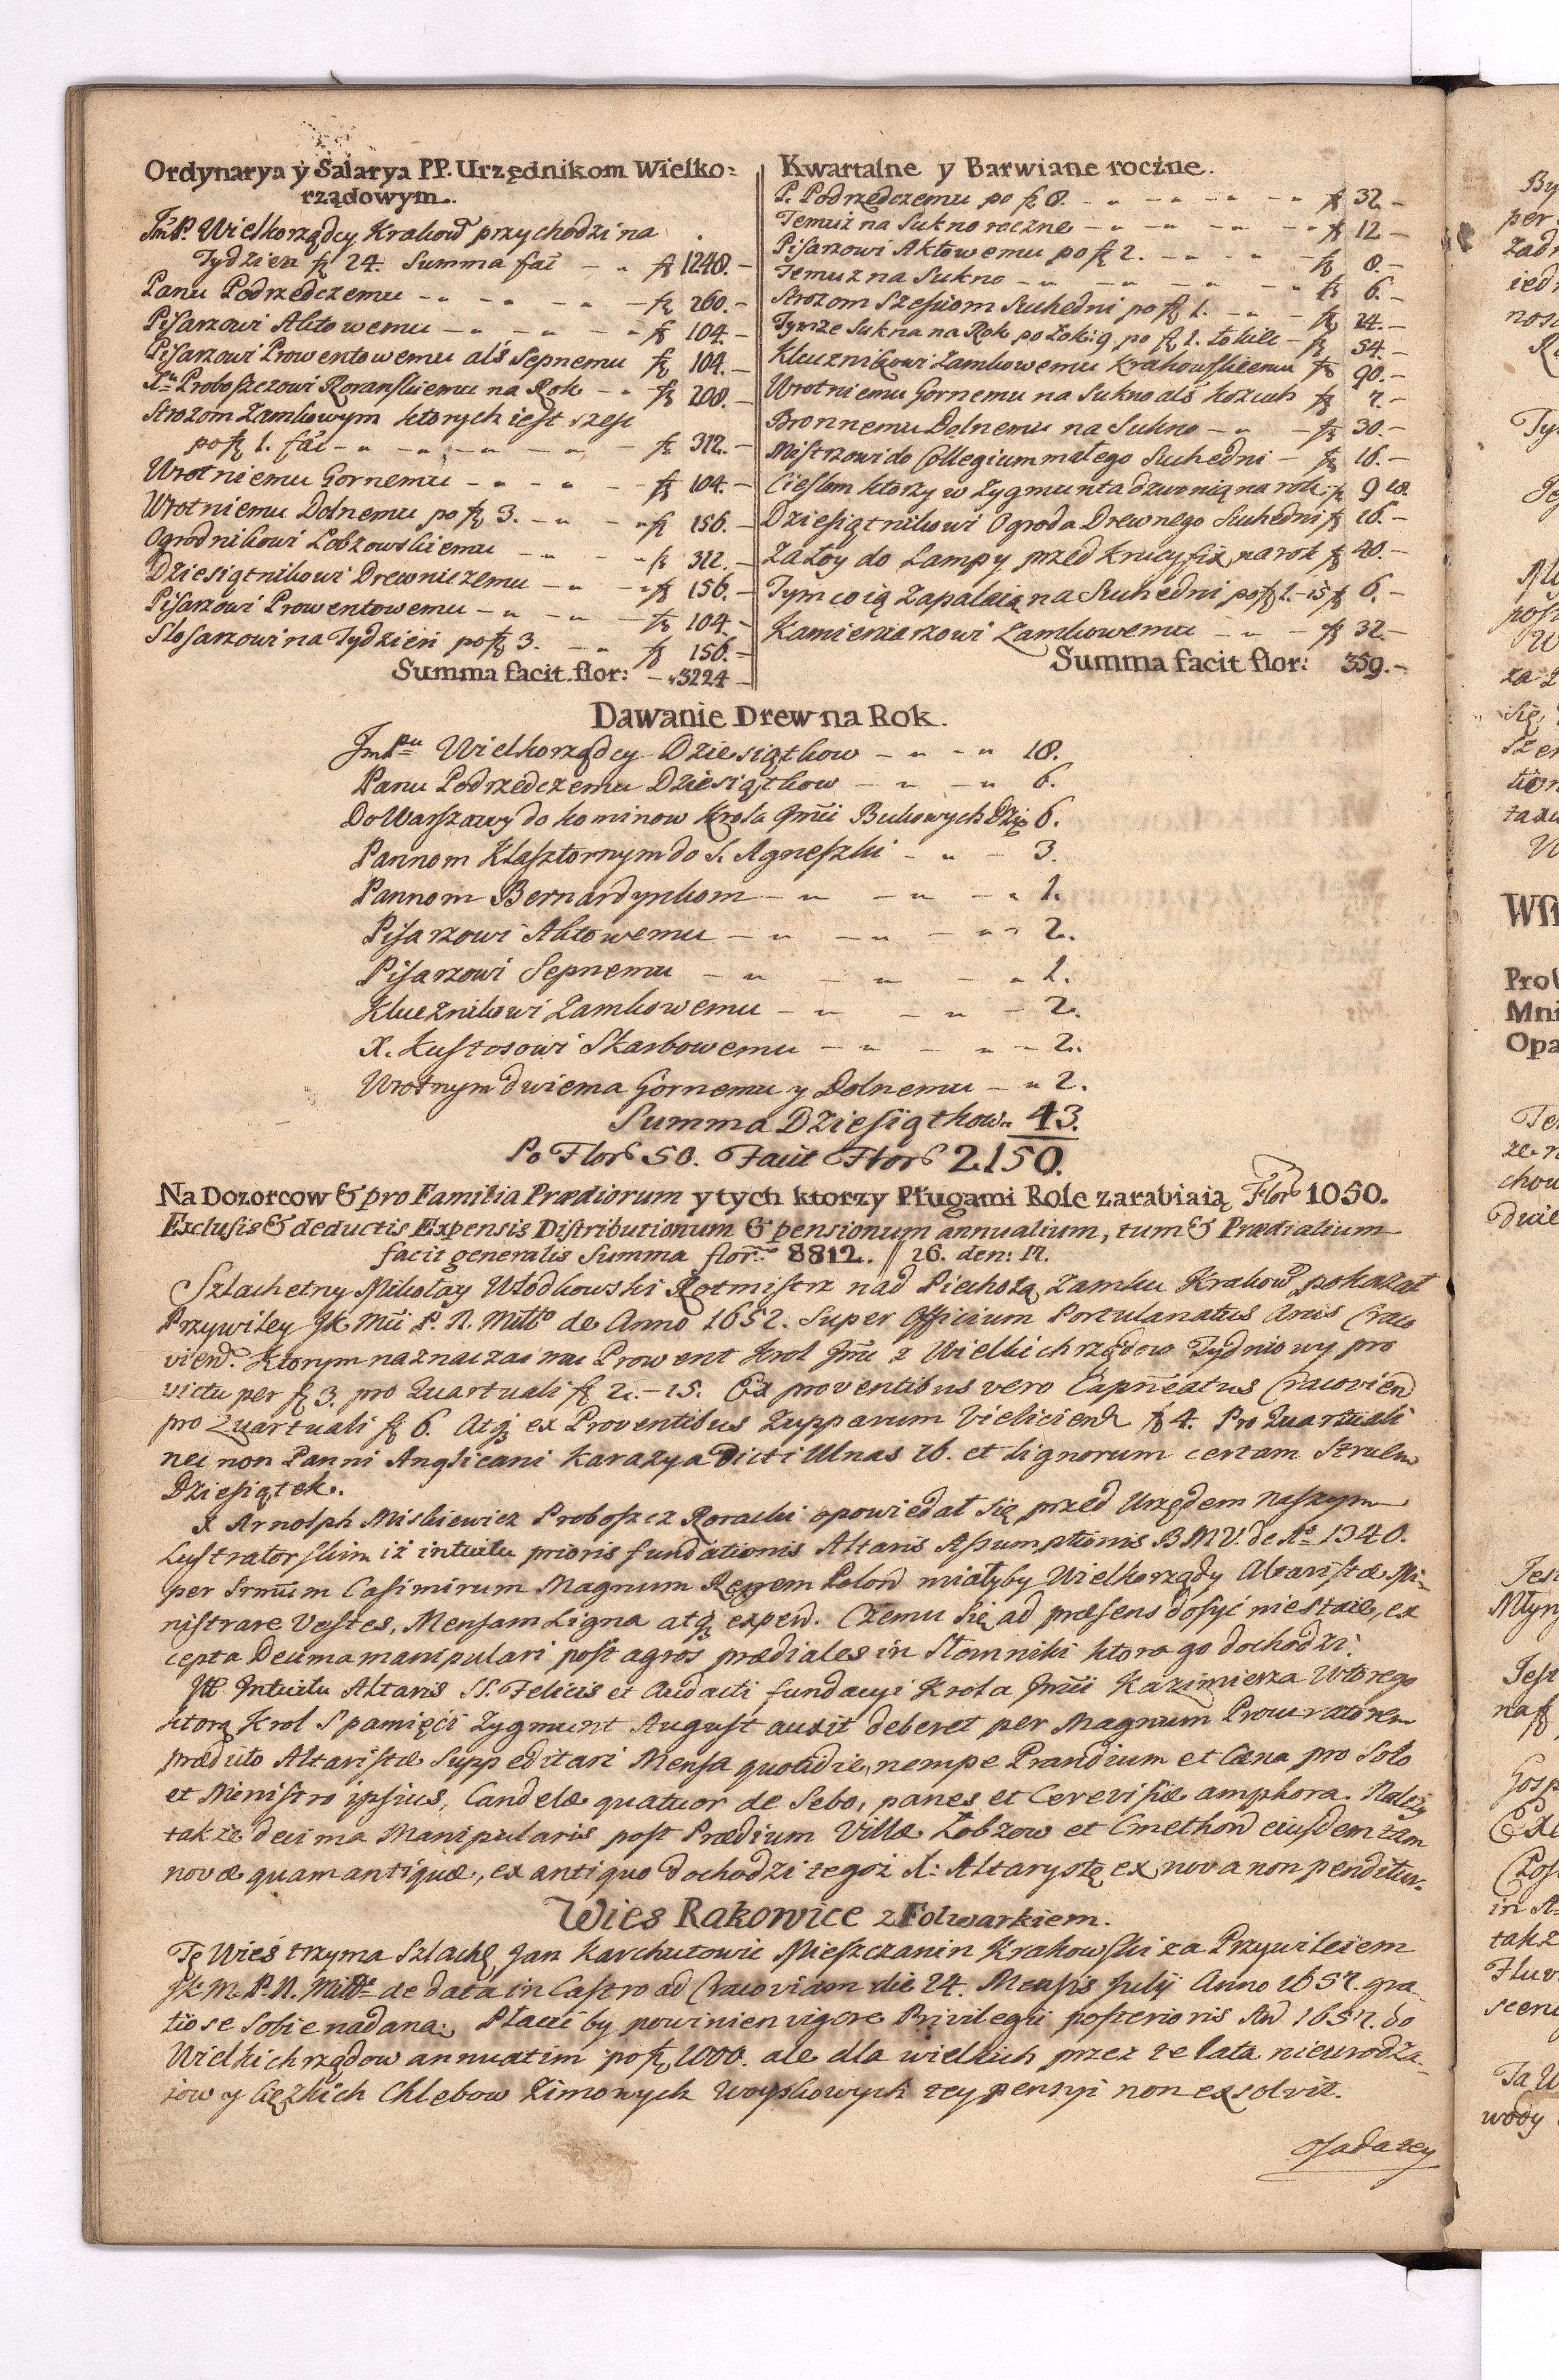 Ordynarya y Salarya P.P. Urzędnikom Wielko=
rządowym.
JmP. Wielkorządcy Krakow przychodzi na
Tydzien fl 24. Summa fac — fl 1248.—
Panu Podrzędczemu — fl 260.—
Pisarzowi Aktowemu — fl 104.—
Pisarzowi Prowentowemu als Sepnemu fl 104.—
Xu Proboszczowi Roranskiemu na Rok — fl 208.—
Strozom Zamkowym ktorych iest szesc
po fl 1. fac — fl 312.—
Wrotniemu Gornemu — fl 104.—
Wrotniemu Dolnemu po fl 3. — fl 156.—
Ogrodnikowi Lobzowskiemu — fl 312.—
Dziesiątnikowi Drewniczemu — fl 156.—
Pisarzowi Prowentowemu — fl 104.—
Slosarzowi na Tydzień po fl 3. — fl 156.—
Summa facit flor: — 3224 —
Kwartalne y Barwiane roczne.
P. Podrzędczemu po fl 8. — fl 32.—
Temuż na Sukno roczne — fl 12.—
Pisarzowi Aktowemu po fl 2. — fl 8.—
Temuz na Sukno — fl 6.—
Strozom Szesiom Suchedni po fl 1. — fl 24.—
Tymze Sukna na Rok po Łokci 9 po fl 1. łokiec — fl 54.—
Kluznikowi Zamkowemu Krakowskiemu fl 90.—
Wrotniemu Gornemu na Sukno als Kożuch fl 7.—
Bronnemu Dolnemu na Sukno — fl 30.—
Mistrzowi do Collegium małego Suchedni — fl 16.—
Cieslom ktorzy w Zygmunta dzwonią na rok fl 9 18.
Dziesiątnikowi Ogroda Drewnego Suchedni fl 16.—
Za Łoy do Lampy przed Krucyfix na rok fl 40.—
Tym co ią Zapalaią na Suchedni po fl 1.–15 fl 6.—
Kamieniarzowi Zamkowemu — fl 32.—
Summa facit flor: 359.—
Dawanie Drew na Rok.
JmPu Wielkorządcy Dziesiątkow — 18.
Panu Podrzędczemu Dziesiątkow — 6.
Do Warszawy do kominow Krola Jmći Bukowych Dzie 6.
Pannom Klasztornym do S. Agneszki — 3.
Pannom Bernardynkom — 1.
Pisarzowi Aktowemu — 2.
Pisarzowi Sepnemu — 1.
Kluznikowi Zamkowemu — 2.
X. Kustosowi Skarbowemu — 2.
Wrotnym dwiema Gornemu y Dolnemu — 2.
Summa Dziesiątkow. 43.
Po Flor 50. Facit Flor 2150.
Na Dozorcow & pro Familia Prædiorum y tych ktorzy Pługami Role zarabiaią Flor 1050.
Exclusis & deductis Expensis Distributionum & pensionum annualium, tum & Prædialium
facit generalis Summa flor. 8812. // 26. den: 17.
Szlachetny Mikołay Włodkowski Rotmistrz nad Piechotą Zamku Krakow pokazał
Przywiley JK Mći P. N. Miłło de Anno 1652. Super Officium Portulanatus Arcis Craco
vien. Ktorym naznacza mu Prowent Krol Jmć z Wielkich rządow Tydniowy pro
victu per fl 3. pro Quartuali fl 2.–15. Ex proventibus vero Capneatus Cracovien
pro Quartuali fl 6. Atq ex Proventibus Zupparum Vieliciens fl 4. Pro Quartuali
nec non Panni Anglicani Karazya Dicti Ulnas 16. et Lignorum certam Struem
Dziesiątek.
X Arnolph Miskiewicz Proboszcz Roracki opowiedał się przed Urzędem naszym
Lustratorskim iż intuitu prioris fundationis Altaris Assumptionis B.M.V. de Ao 1340.
per Srmum Casimirum Magnum Regem Polon miałyby Wielkorządy Altaristæ Mi-
nistrare Vestes, Mensam Ligna atq expen. Czemu się ad præsens dosyć niestaie, ex
cepta Decima manipulari post agros prædiales in Słomniki ktora go dochodzi.
Itt Intuitu Altaris SS. Felicis et Audacti fundacyi Krola Jmći Kazimierza Wtorego
ktorą Krol S pamięći Zygmunt August auxit deberet per Magnum Procuratorem
prædicto Altaristæ Suppeditari Mensa quotidie, nempe Prandium et Cæna pro Solo
et Ministro ipsius, Candelæ quatuor de Sebo, panes et Cerevisiæ amphora. Należy
także decima Manipularis post Prædium Villæ Łobzow et Cmethon eiusdem tam
novæ quam antiquæ, ex antiquo dochodzi tegoż X: Altarystę ex nova non penditur.
Wies Rakowice z Folwarkiem.
Tę Wieś trzyma Szlache Jan Karchutowic Mieszczanin Krakowski za Przywileiem
JK M. P. N. Miłło de data in Castro ad Cracoviam die 24. Mensis Julij Anno 1657. gra-
tiose sobie nadana. Płacić by powinien vigore Privilegii posterioris An 1657. do
Wielkich rządow annuatim po fl 1000. ale dla wielkich przez te lata nieurodza-
iow y Cięzkich Chlebow Zimowych Woyskowych tey pensyi non exsolvit.
Osada tey